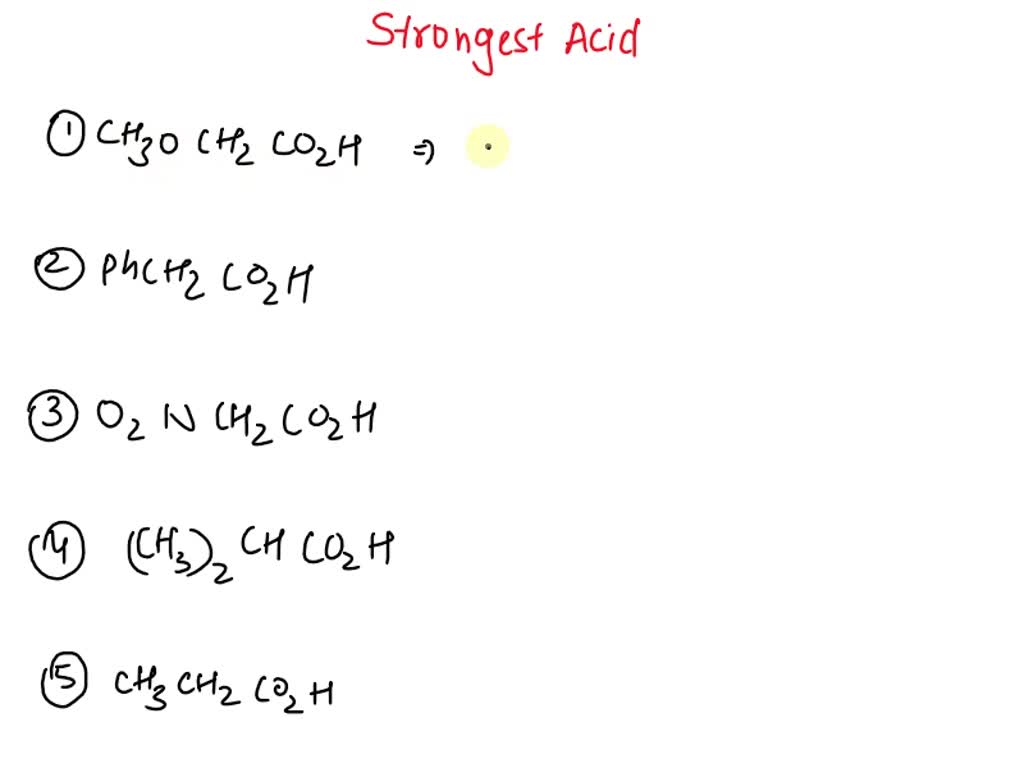 Strongest Acid
① CH3O CH2 CO2H ⇒
② PhCH2 CO2H
③ O2 N CH2 CO2H
④ (CH3)2 CH CO2H
⑤ CH3 CH2 CO2H